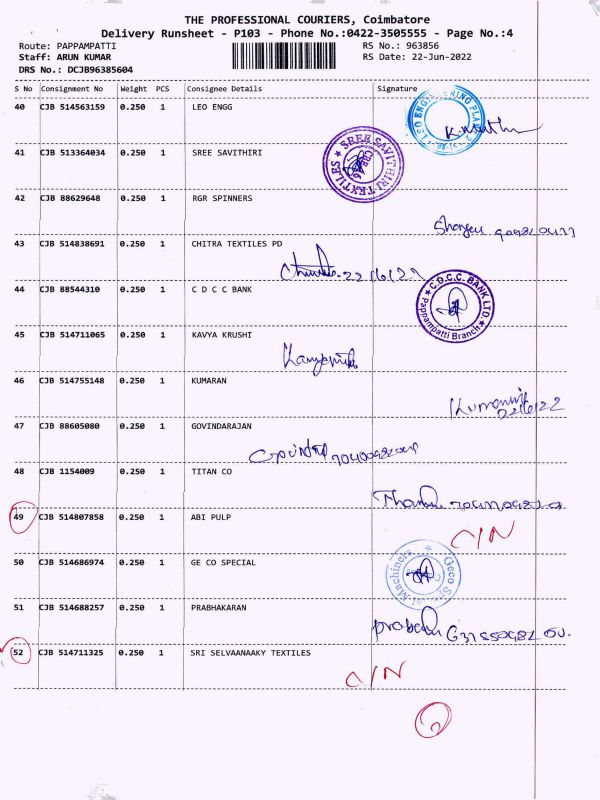 THE PROFESSIONAL COURIERS, Coimbatore
Delivery Runsheet - P103 - Phone No.:0422-3505555 - Page No.:4
Route: PAPPAMPATTI
Staff: ARUN KUMAR
DRS No.: DCJB96385604
RS No.: 963856
RS Date: 22-Jun-2022
S No Consignment No Weight PCS Consignee Details Signature
40 CJB 514563159 0.250 1 LEO ENGG
41 CJB 513364034 0.250 1 SREE SAVITHIRI
SREE SAVITHIRI TEXTILES
42 CJB 88629648 0.250 1 RGR SPINNERS
43 CJB 514838691 0.250 1 CHITRA TEXTILES PD
44 CJB 88544310 0.250 1 C D C C BANK
C.D.C.C. BANK LTD
Pappampatti Branch
45 CJB 514711065 0.250 1 KAVYA KRUSHI
46 CJB 514755148 0.250 1 KUMARAN
47 CJB 88605080 0.250 1 GOVINDARAJAN
48 CJB 1154009 0.250 1 TITAN CO
49 CJB 514807858 0.250 1 ABI PULP
C/N
50 CJB 514686974 0.250 1 GE CO SPECIAL
51 CJB 514688257 0.250 1 PRABHAKARAN
52 CJB 514711325 0.250 1 SRI SELVAANAAKY TEXTILES
C/N
2